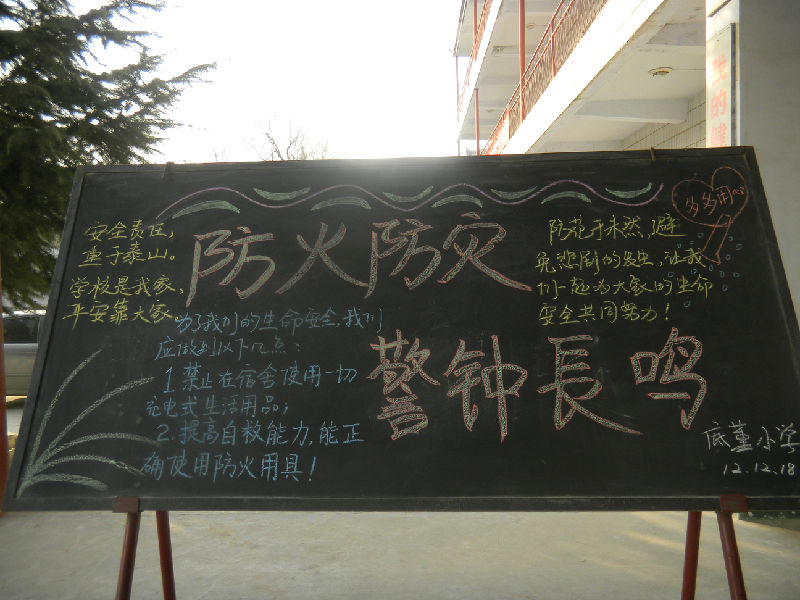 防火防灾
警钟長鸣
安全责任,
重于泰山。
学校是我家,
平安靠大家。
为了我们的生命安全,我们
应做到以下几点:
1.禁止在宿舍使用一切
充电式生活用品;
2.提高自救能力,能正
确使用防火用具!
防范于未然,避
免悲剧的发生,让我
们一起为大家的生命
安全共同努力!
多多用心
底董小学
12.12.18
我的健